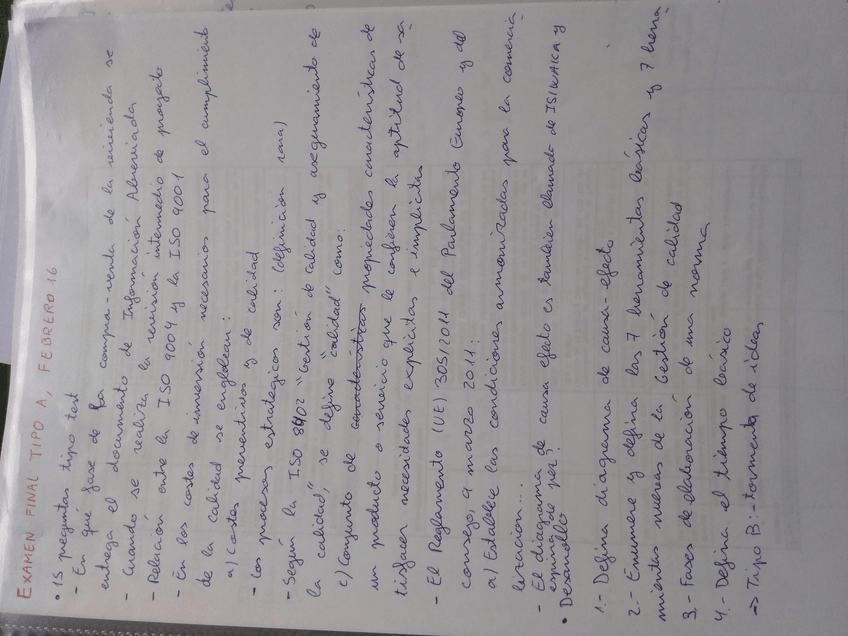 EXAMEN FINAL TIPO A, FEBRERO 16
• 15 preguntas tipo test
- En qué fase de la compra-venta de la vivienda se
entrega el documento de Información Abreviada
- Cuando se realiza la revisión intermedia de proyecto
- Relación entre la ISO 9004 y la ISO 9001
- En los costes de inversión necesarios para el cumplimiento
de la calidad se engloban:
a) Costes preventivos y de calidad
- Los procesos estrategicos son: (definicion rara)
- Segun la ISO 8402 "Gestión de calidad y aseguramiento de
la calidad", se define "calidad" como:
c) Conjunto de caracteristicas propiedades características de
un producto o servicio que le confieren la aptitud de sa-
tisfacer necesidades explicitas e implicitas
- El Reglamento (UE) 305/2011 del Parlamento Europeo y del
consejo, 9 marzo 2011:
a) Establece las condiciones armonizadas para la comercia
lizacion...
- El diagrama de causa efecto es tambien llamado de ISIKAIKA y
espina de pez?
• Desarrollo
1.- Defina diagrama de causa-efecto
2.- Enumere y defina las 7 herramientas básicas y 7 herra-
mientas nuevas de la Gestión de calidad
3.- Fases de elaboración de una norma
4.- Defina el tiempo básico
→ Tipo B:- tormenta de ideas